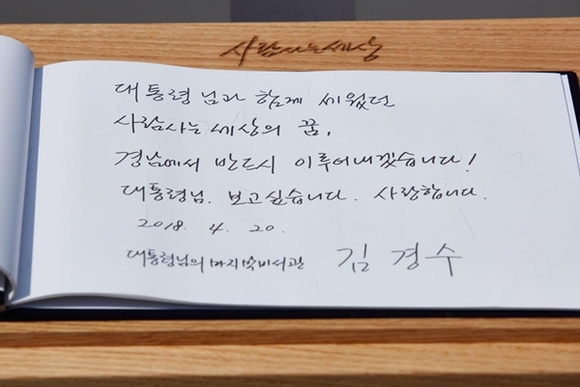 사람사는세상
대통령님과 함께 세웠던
사람사는 세상의 꿈,
경남에서 반드시 이루어내겠습니다!
대통령님. 보고싶습니다. 사랑합니다.
2018. 4. 20.
대통령님의 마지막비서관 김경수